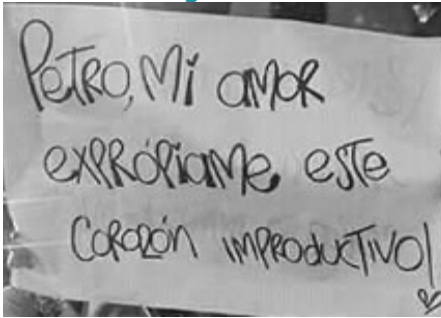 PETRO, Mi AMOR
EXPRÓPIAME este
CORAZÓN IMPRODUCTIVO!